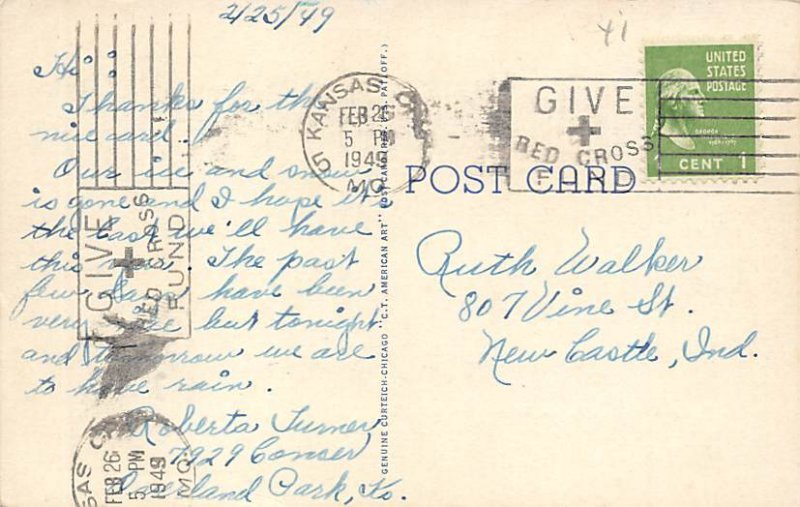 2/25/49
Hi:
Thanks for the
nice card.
Our ice and snow
is gone and I hope it's
the last we'll have
this year. The past
few days have been
very nice but tonight
and tomorrow we are
to have rain.
Roberta Turner
7929 Conser
Overland Park, Ks.
GIVE
RED CROSS
FUND
SAS C
FEB 26
5 PM
1949
MO.
GENUINE CURTEICH-CHICAGO "C.T. AMERICAN ART" POST CARD (REG. U.S. PAT. OFF.)
KANSAS C
FEB 26
5 PM
1949
MO.
GIVE
RED CROSS
FUND
UNITED
STATES
POSTAGE
GEORGE
CENT 1
POST CARD
Ruth Walker
807 Vine St.
New Castle, Ind.